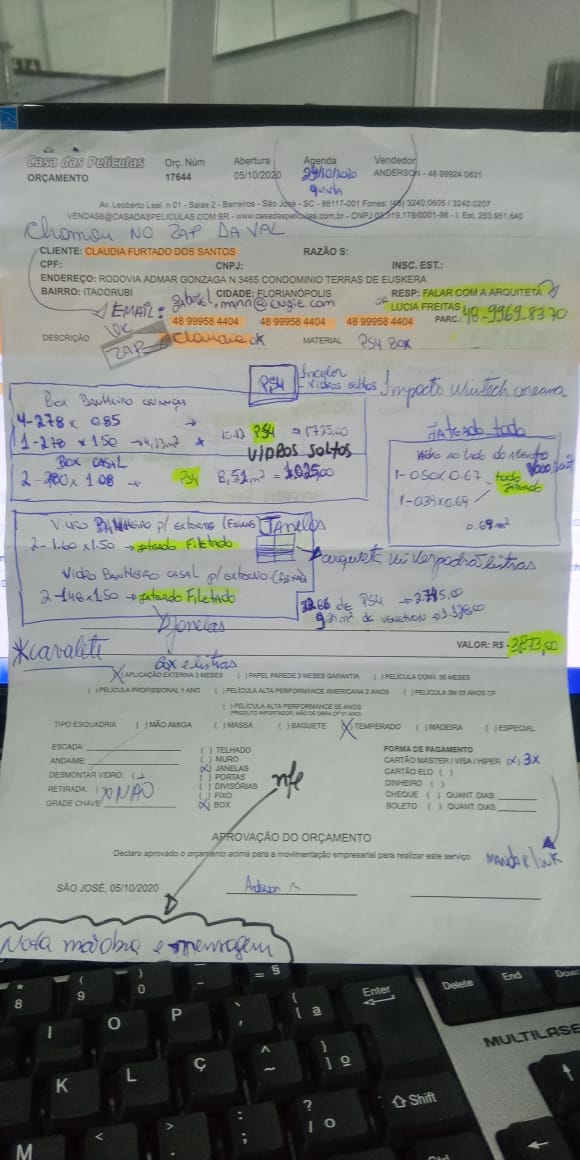 Casa das Películas
ORÇAMENTO
Orç. Núm
17644
Abertura
05/10/2020
Agenda
29/10/2020
quinta
Vendedor
ANDERSON - 48 99924 0831
Av. Leoberto Leal, n 01 - Salas 2 - Barreiros - São José - SC - 88117-001 Fones: (48) 3240.0505 / 3240.0207
VENDAS6@CASADASPELICULAS.COM.BR - www.casadaspeliculas.com.br - CNPJ 02.319.178/0001-98 - I. Est. 253.951.640
Chamou NO ZAP DA VAL
CLIENTE: CLAUDIA FURTADO DOS SANTOS RAZÃO S:
CPF: CNPJ: INSC. EST.:
ENDEREÇO: RODOVIA ADMAR GONZAGA N 3465 CONDOMINIO TERRAS DE EUSKERA
BAIRRO: ITACORUBI CIDADE: FLORIANÓPOLIS RESP: FALAR COM A ARQUITETA
EMAIL: LUCIA FREITAS
48 99958 4404 48 99958 4404 48 99958 4404 PARC.: 48-9969.8370
ZAP Claudia OK
DESCRIÇÃO MATERIAL PS4 BOX
PS4 Incolor
vidros soltos Impacto Wintech coreana
Box Banheiro
4-278 x 0.85
1-278 x 1.50 PS4 = 1725,00
VIDROS SOLTOS
BOX CASAL
2-280 x 1.08 PS4 8,51m² = 1.025,00
Jateado todo
1-050 x 0.67 todo jateado
1-039 x 0.69
0.69m²
Vidro Banheiro p/ externo Janelas
2-1.60 x 1.50 jateado Filetado
arquiteta listras
Vidro Banheiro casal p/ externo
2-148 x 1.50 jateado Filetado
de PS4
Janelas
VALOR: R$ 3.873,00
*cavalete
Box e listras
(X) APLICAÇÃO EXTERNA 3 MESES ( ) PAPEL PAREDE 3 MESES GARANTIA ( ) PELÍCULA CONV. 06 MESES
( ) PELÍCULA PROFISSIONAL 1 ANO ( ) PELÍCULA ALTA PERFORMANCE AMERICANA 2 ANOS ( ) PELÍCULA 3M 03 ANOS CP
( ) PELÍCULA ALTA PERFORMANCE 05 ANOS
TIPO ESQUADRIA ( ) MÃO AMIGA ( ) MASSA ( ) BAGUETE (X) TEMPERADO ( ) MADEIRA ( ) ESPECIAL
ESCADA:
ANDAIME:
DESMONTAR VIDRO:
RETIRADA: NÃO
GRADE CHAVE:
( ) TELHADO
( ) MURO
(X) JANELAS
( ) PORTAS
( ) DIVISÓRIAS
( ) FIXO
(X) BOX
nfe
FORMA DE PAGAMENTO
CARTÃO MASTER / VISA / HIPER (X) 3X
CARTÃO ELO ( )
DINHEIRO ( )
CHEQUE ( ) QUANT. DIAS:
BOLETO ( ) QUANT. DIAS
APROVAÇÃO DO ORÇAMENTO
Declaro aprovado o orçamento acima para a movimentação empresarial para realizar este serviço
Mandar link
SÃO JOSÉ, 05/10/2020
Nota e mensagem
Enter
Delete
End
Shift
MULTILASE
* 8
( 9
) 0
I O P
K L Ç
M